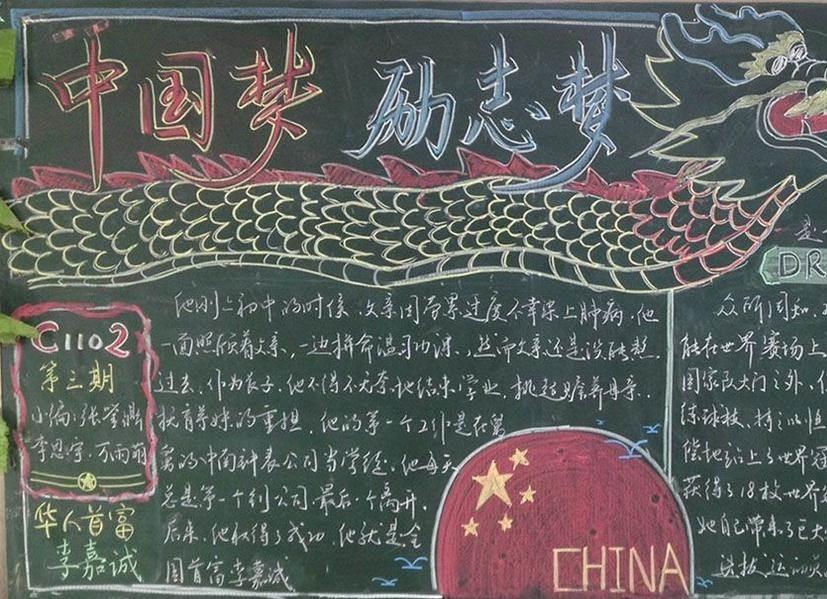 中国梦 励志梦
DR
C1102
第三期
小编:张
李思宇.万雨萌
华人首富
李嘉诚
他刚上初中的时候,父亲因劳累过度不幸染上肺病,他
一面照顾着父亲,一边拼命温习功课,然而父亲还是没能熬
过去,作为长子,他不得不无奈地结束学业,挑起赡养母亲、
抚育弟妹的重担,他的第一个工作是在舅
舅的中南钟表公司当学徒,他每天
总是第一个到公司最后一个离开,
后来,他取得了成功,他就是全
国首富李嘉诚
众所周知,
能在世界赛场上
国家队大门之外,
练球技,持之以恒
偿地站上了世界冠
获得了18枚世界
她自己带来了巨大
CHINA